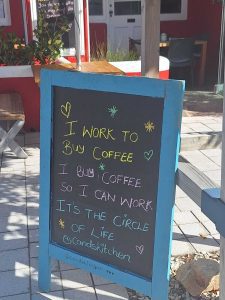 I WORK TO
BUY COFFEE
I BUY COFFEE
SO I CAN WORK
IT'S THE CIRCLE
OF LIFE